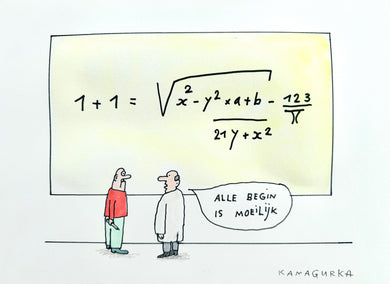 1 + 1 = √x² - y² x a + b - 123
21 y + x² π
ALLE BEGIN
IS MOEILIJK
KAMAGURKA